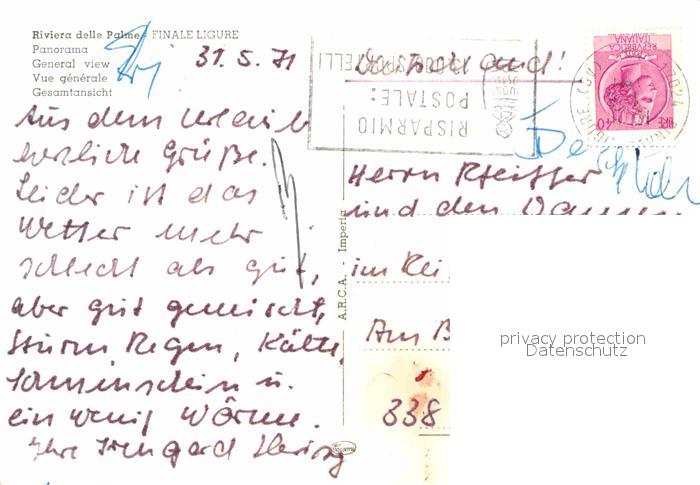 Riviera delle Palme - FINALE LIGURE
Panorama
General view
Vue générale
Gesamtansicht
31.5.71
Aus dem Urlaub
herzliche Grüße.
Leider ist das
Wetter mehr
schlecht als gut,
aber gut gemischt,
Sturm, Regen, Kälte,
Sonnenschein u.
ein wenig Wärme.
Ihre Irmgard
A.R.C.A. - Imperia
RISPARMIO
POSTALE:
REPUBBLICA
ITALIANA
LIRE 40
Deutschland!
Herrn Pfeiffer
und den Damen
im
Am B
338
privacy protection
Datenschutz